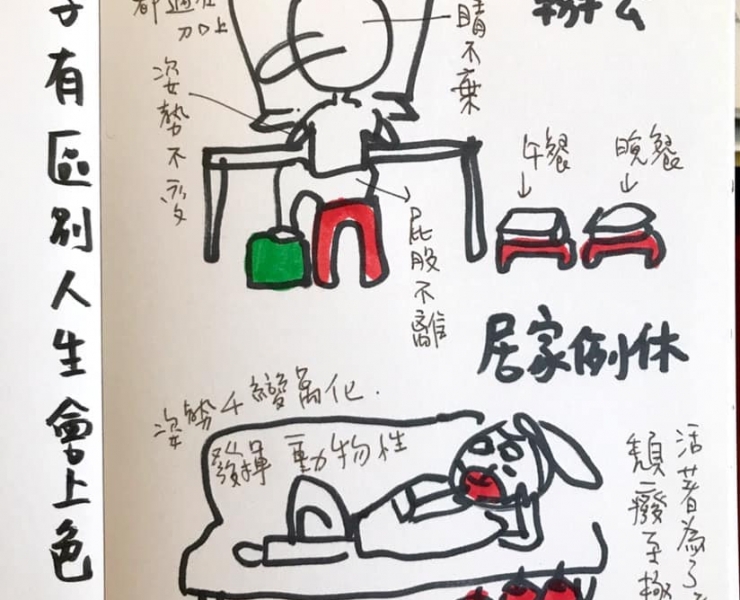 有區別人生會上色
加上
眼睛不棄
姿勢不變
屁股不離
午餐
晚餐
居家例休
姿勢千變萬化.
發揮動物性
活著為了
頹廢至極